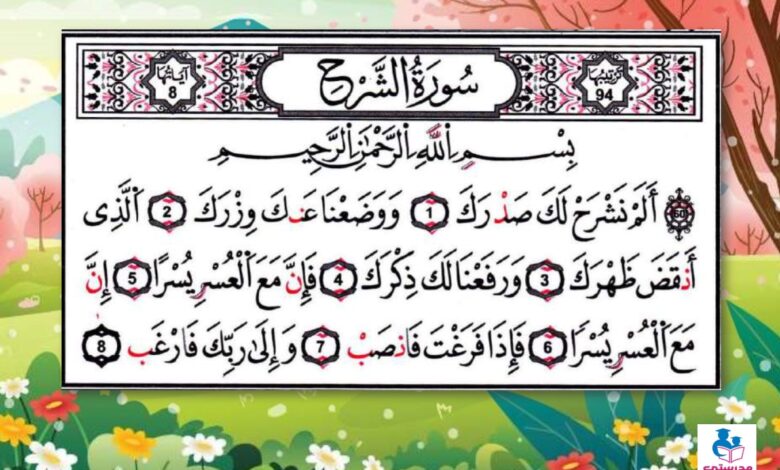 ترتيبها 94
سُورَةُ الشَّرْحِ
آياتها 8
بِسْمِ اللَّهِ الرَّحْمَٰنِ الرَّحِيمِ
60 أَلَمْ نَشْرَحْ لَكَ صَدْرَكَ 1 وَوَضَعْنَا عَنكَ وِزْرَكَ 2 ٱلَّذِى
أَنقَضَ ظَهْرَكَ 3 وَرَفَعْنَا لَكَ ذِكْرَكَ 4 فَإِنَّ مَعَ ٱلْعُسْرِ يُسْرًا 5 إِنَّ
مَعَ ٱلْعُسْرِ يُسْرًا 6 فَإِذَا فَرَغْتَ فَٱنصَبْ 7 وَإِلَىٰ رَبِّكَ فَٱرْغَب 8
مدرستي